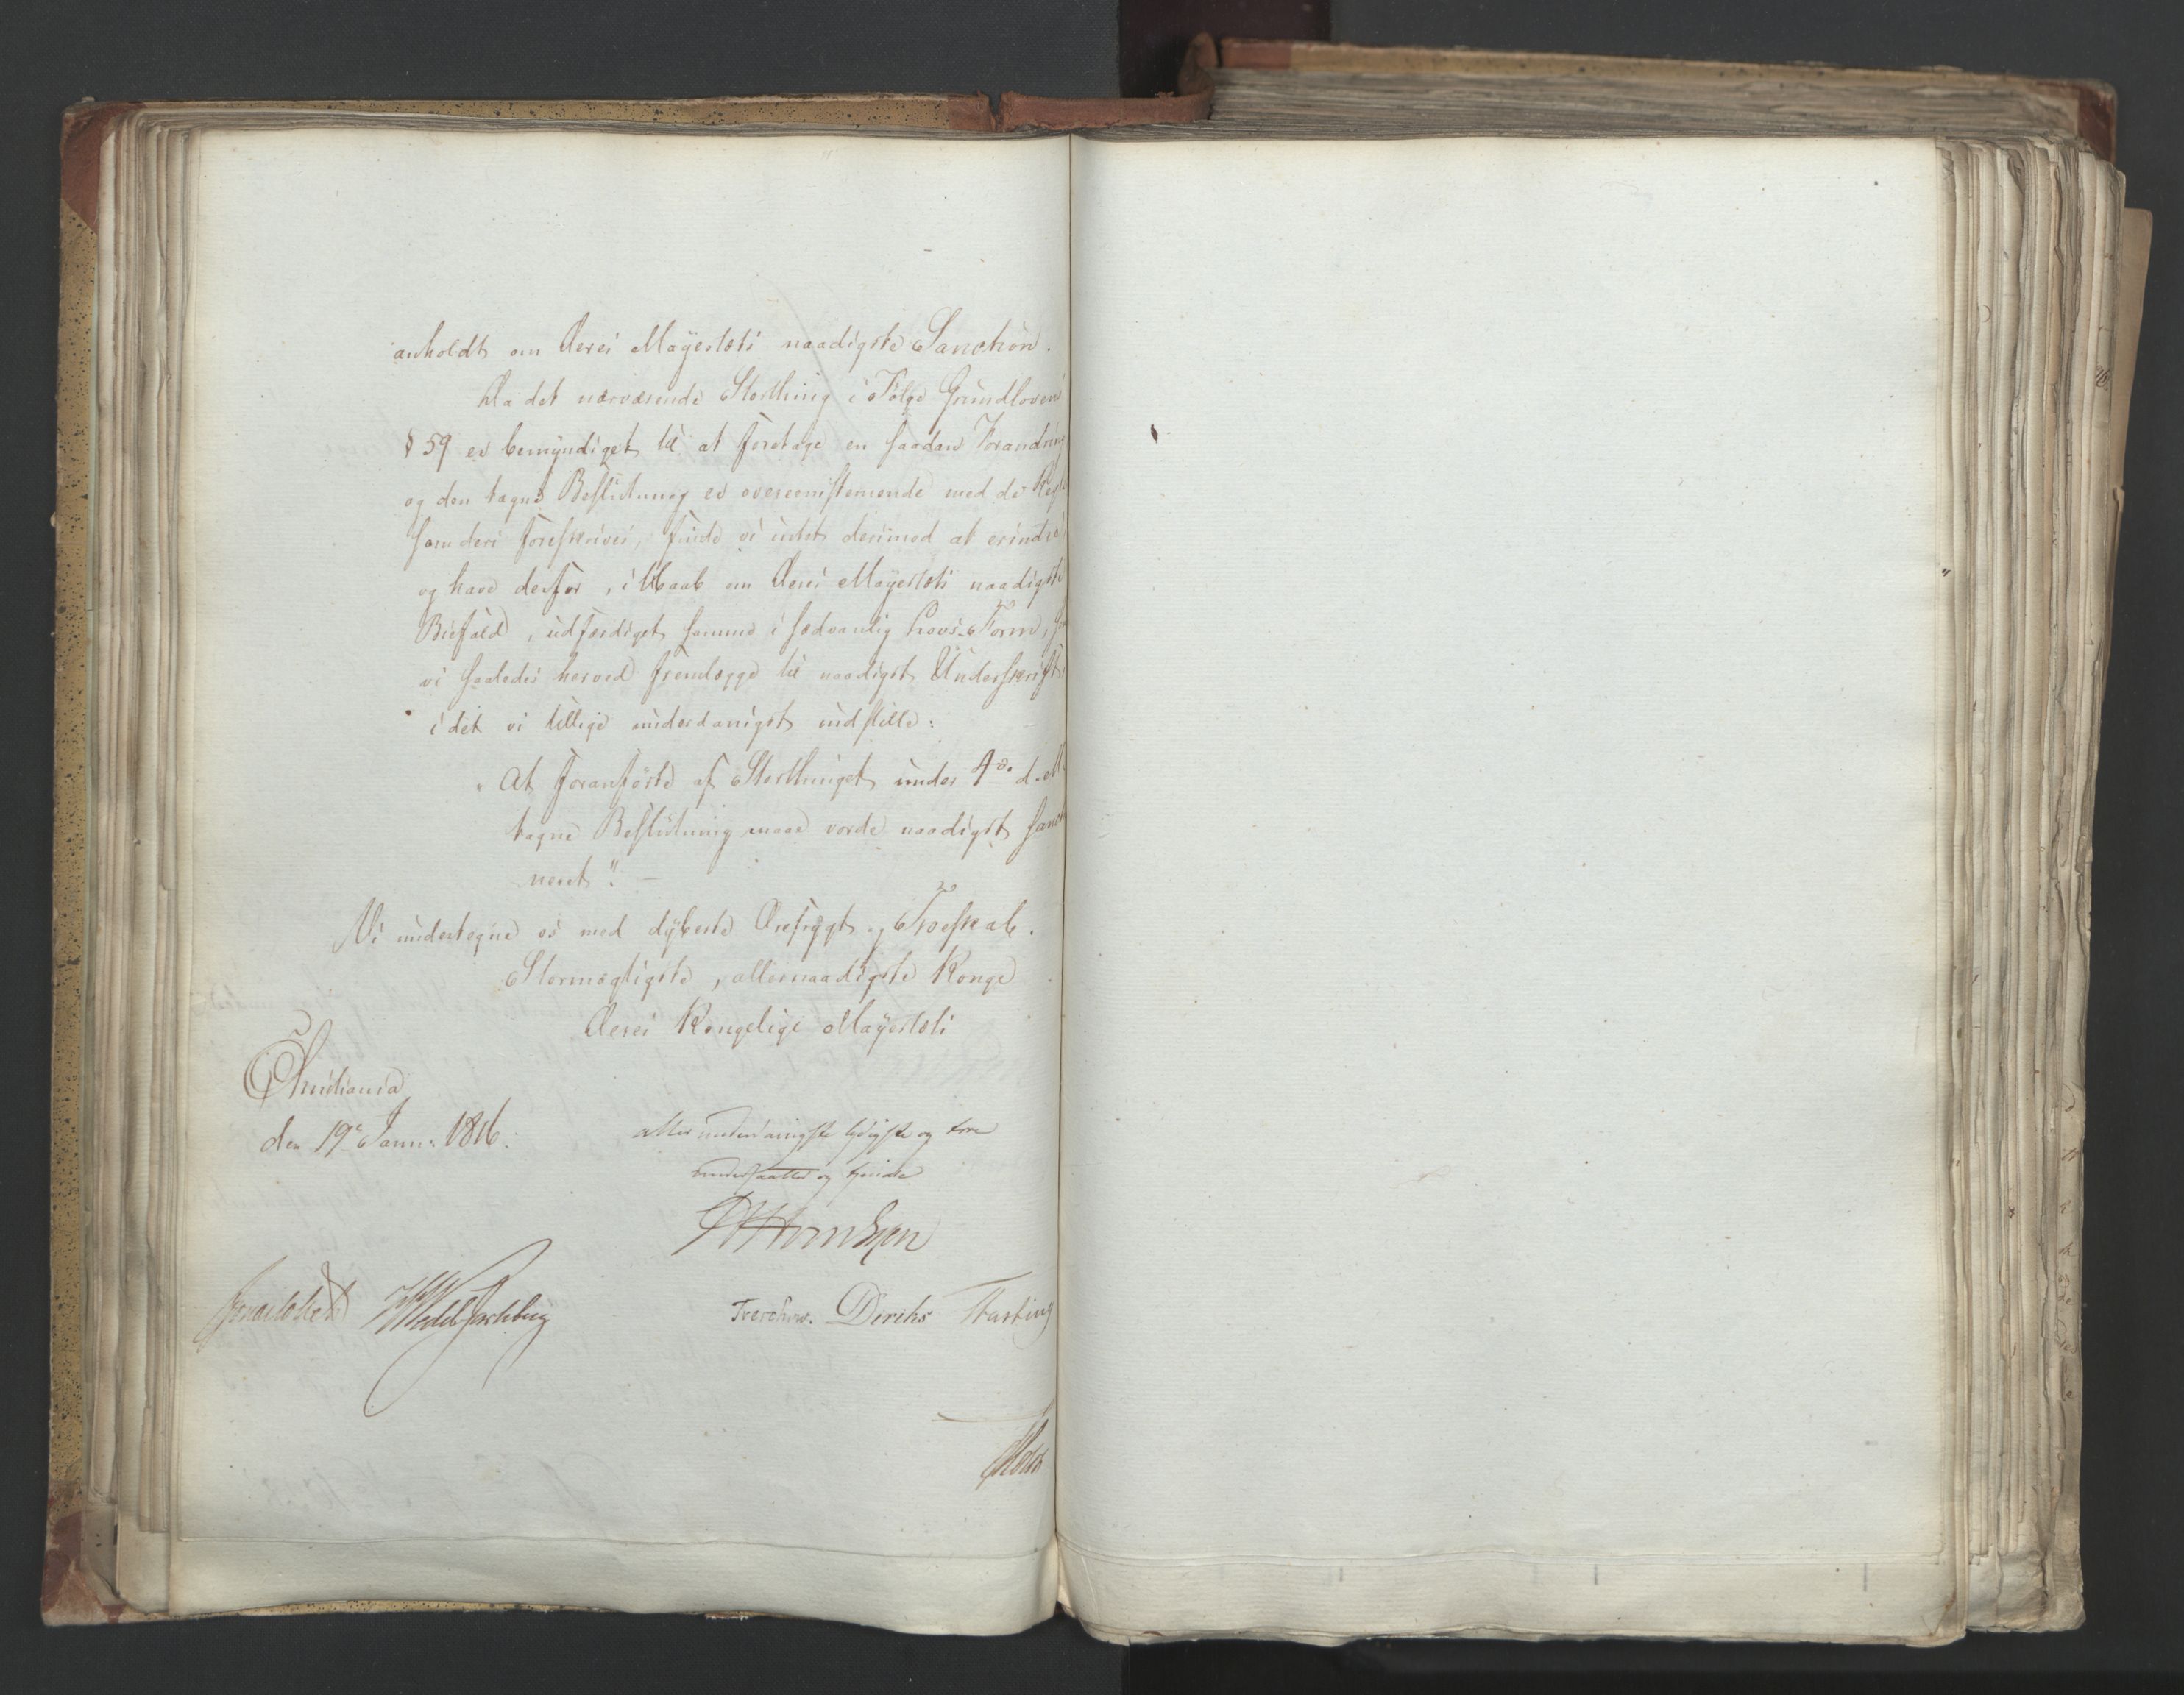 anholdt om Deres Mayestæts naadigste Sanction.
Da det nærværende Storthing i Følge Grundlovens
§ 59 er bemyndiget til at foretage en saadan Forandring
og den tagne Beslutning er overeensstemmende med de
som deri foreskrives, finde vi intet derimod at erindre
og have derfor, i Haab om Deres Mayestæts naadigste
Biefald, udfærdiget samme i sædvanlig Lovs-Form,
vi saaledes herved fremlægge til naadigst Underskrift
i det vi tillige underdanigst indstille:
"At foranførte af Storthinget under 4de d. M.
tagne Beslutning maae vorde naadigst sanctio
neret". —
Vi undertegne os med dybeste Ærefrygt og Troeskab.
Stormægtigste, allernaadigste Konge
Deres Kongelige Mayestæts
Christiania
den 19de Janr: 1816.
allerunderdanigste lydigste og troe
undersaatter og tjenere
Jonas Collett HWedel Jarlsberg
Treschow. Diriks Hasting